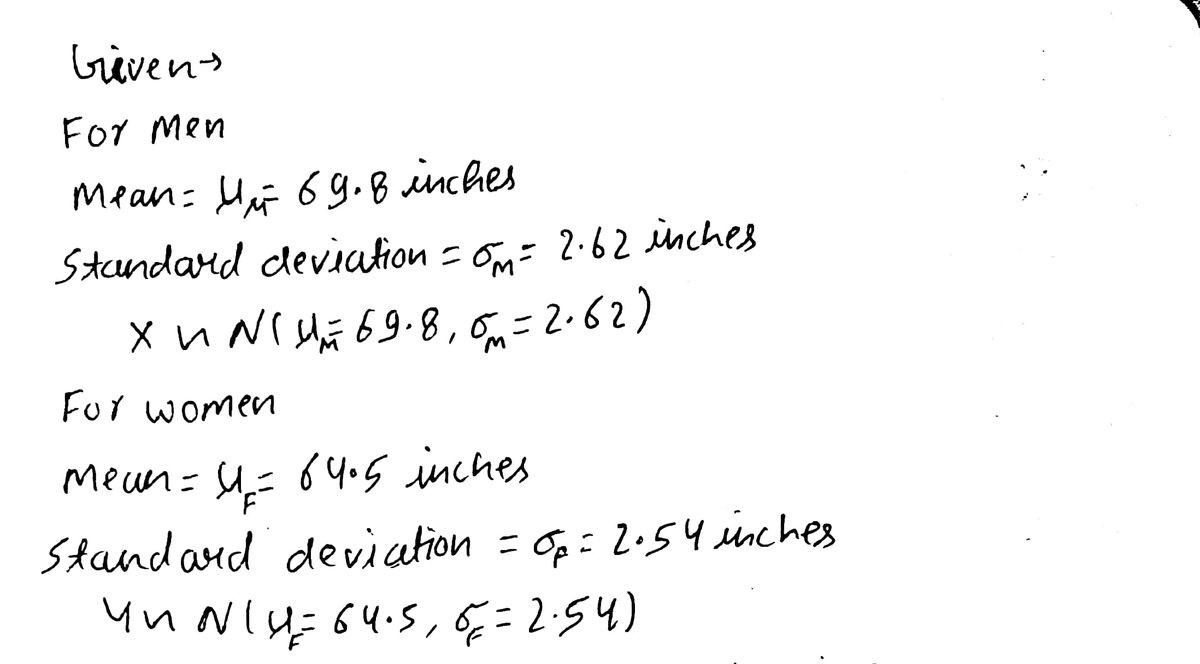 Given→
For Men
Mean = μ_M = 69.8 inches
Standard deviation = σ_M = 2.62 inches
X ~ N(μ_M = 69.8, σ_M = 2.62)
For women
Mean = μ_F = 64.5 inches
Standard deviation = σ_F = 2.54 inches
Y ~ N(μ_F = 64.5, σ_F = 2.54)